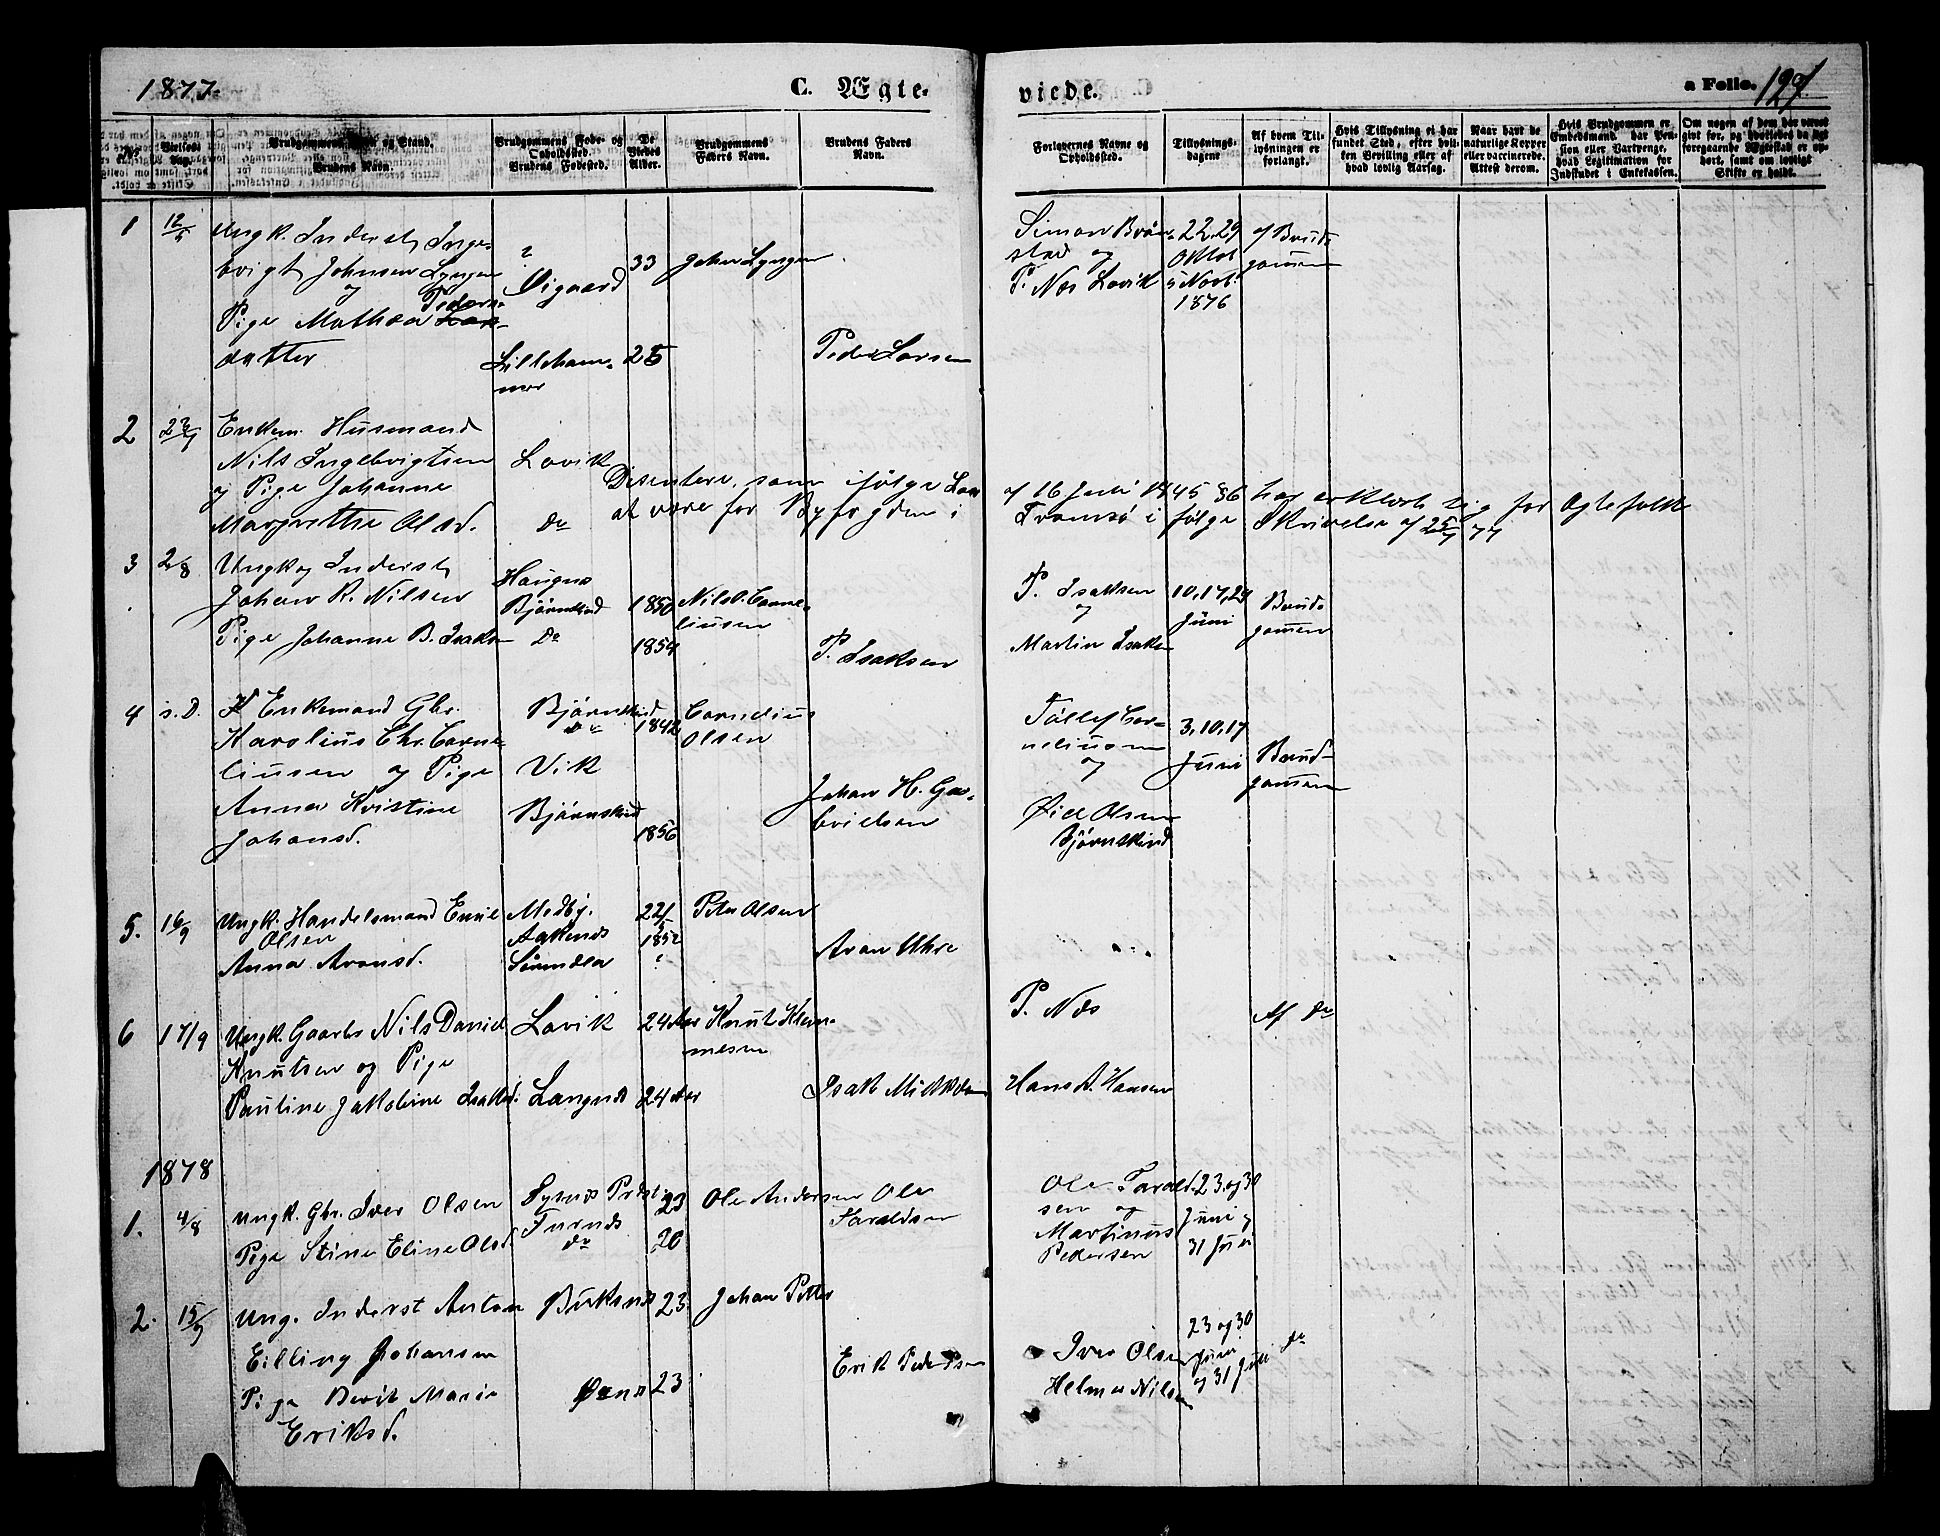 1877.
C. Ægte-
viede.
a Folio. 129
No
Vielses-
Dag.
Brudgommens Navn og Stand.
Brudens Navn.
Brudgommens Føde- og
Opholdssted.
Brudens Fødested.
Be-
gges
Alder.
Brudgommens
Faders Navn.
Brudens Faders
Navn.
Forlovernes Navne og
Opholdssted.
Tillysnings-
dagene
Af hvem Til-
lysningen er
forlangt.
Hvis Tillysning ei har
fundet Sted, efter hvil-
ken Bevilling eller af
hvad lovlig Aarsag.
Naar havt de
naturlige Kopper
eller vaccinerede.
Attest derom.
Hvis Brudgommen er
Embedsmand har Pen-
sion eller Vartpenge,
hvad Legitimation for
Indskudet i Enkekassen.
Om nogen af dem har været
gift før, og hvorledes da det
foregaaende Ægteskab er op-
hørt, samt om lovligt
Skifte er holdt.
1
Ungk. Inderst Inge-
brigt Johnsen Lyngen
og
Pige Mathea Peders-
datter
?
Øigaard
Lilleham-
mer
33
25
Johan Lyngen
Peder Larsen
Simon Brøn-
stad og
P. Næs Lovik
22.29
Oktob
5 Novb.
1876
af Brud-
gommen
2 23/7
Enkem. Husmand
Nils Ingebrigtsen
og Pige Johanne
Margrethe Olsd.
Lovik
Do
Disentere, som ifølge Lov af 16 Juli 1845 §6 har erklært sig for Ægtefolk
at være for Byfogden i Tromsø i følge Skrivelse af 25/7 77
3 2/8
Ungk og Inderst
Johan R. Nilsen
Pige Johanne B. Isaks
Haugnes
Bjørnskind
Do
1850
1854
Nils Corne-
liusen
P. Isaksen
P. Isaksen
og
Martin Isaks
10,17,24
Juni
Brud-
gommen
4 s. D.
Enkemand Gbr.
Karolius Chr. Corne-
liusen og Pige
Anna Kristine
Johansd.
Bjørnskind
Do
Vik
Bjørnskind
1842
1856
Cornelius
Olsen
Johan H. Ga-
brielsen
Tollef Cor-
neliusen
og
Øiel Olsen
Bjørnskind
3,10,17
Juni
Brud-
gommen
5. 16/9
Ungk. Handelsmand Enie
Olsen
Anna Aronsd.
Medby.
Aakenes
Sørendea
1852
?
Peter Olsen
Aron Uhre
6 17/9
Ungk. Gaarbr Nils Daniel
Knutsen og Pige
Pauline Jakobine Isaksd.
Lovik
Langnes
24 Aar
24 Aar
Knut Klem-
mesen
Isak Mikkelsen
P. Næs
Hans A. Hansen
Af Do
1878
1. 4/8
Ungk. Gbr. Iver Olsen
Pige Stine Eline Olsd.
Furnes
do
23
20
Ole Andersen
Ole
Taraldsen
Ole Tarald-
sen og
Martinus
Pedersen
23. og 30
Juni og
31 Juli
2. 15/9
Ung. Inderst Anton
Eilling Johansen
Pige Berit Marie
Eriksd.
Buksnes
23
23
Johan Petter
Erik Pedersen
Iver Olsen
Helmer Nilsen
23 og 30
Juni
og 31 Juli
do